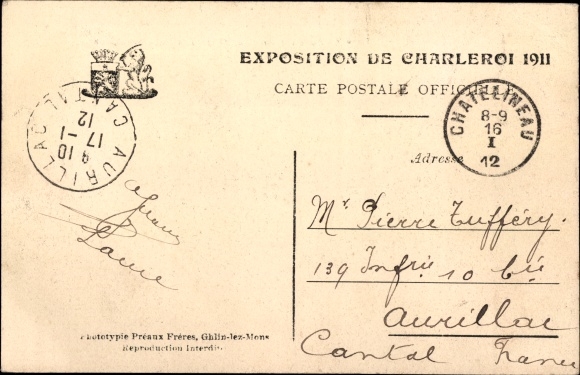 EXPOSITION DE CHARLEROI 1911
CARTE POSTALE OFFICIELLE
CHATELINEAU
8-9
16
I
12
AURILLAC
CANTAL
9 10
17-1
12
Adresse
Mr. Pierre Tufféry.
139 Infrie 10 bis
Aurillac
Cantal France
Phototypie Préaux Fréres, Ghlin-lez-Mons
Reproduction interdite